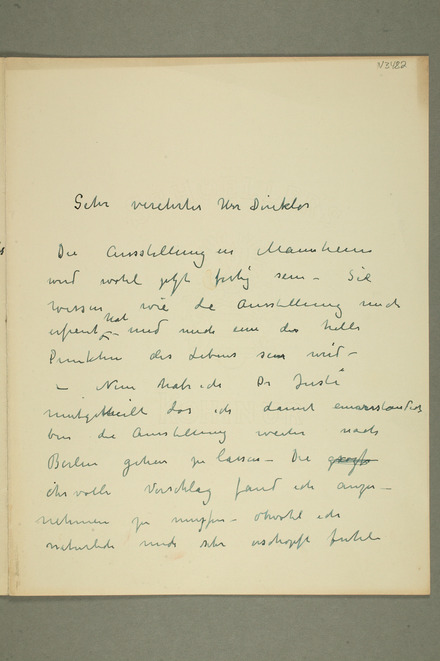 N3482
Sehr verehrter Herr Direktor
Die Ausstellung in Mannheim
wird wohl jetzt fertig sein – Sie
wissen wie die Ausstellung mich
erfreut hat – und mich eine der helle
Punkten des Lebens sein wird –
– Nun hab ich Dr Justi
mitgetheilt das ich damit einverstanden
bin die Ausstellung weiter nach
Berlin gehen zu lassen – Die
ihr volle Vorschlag fand ich ange-
nehmen zu – obwohl ich
natürlich mich sehr erschöpft fühle